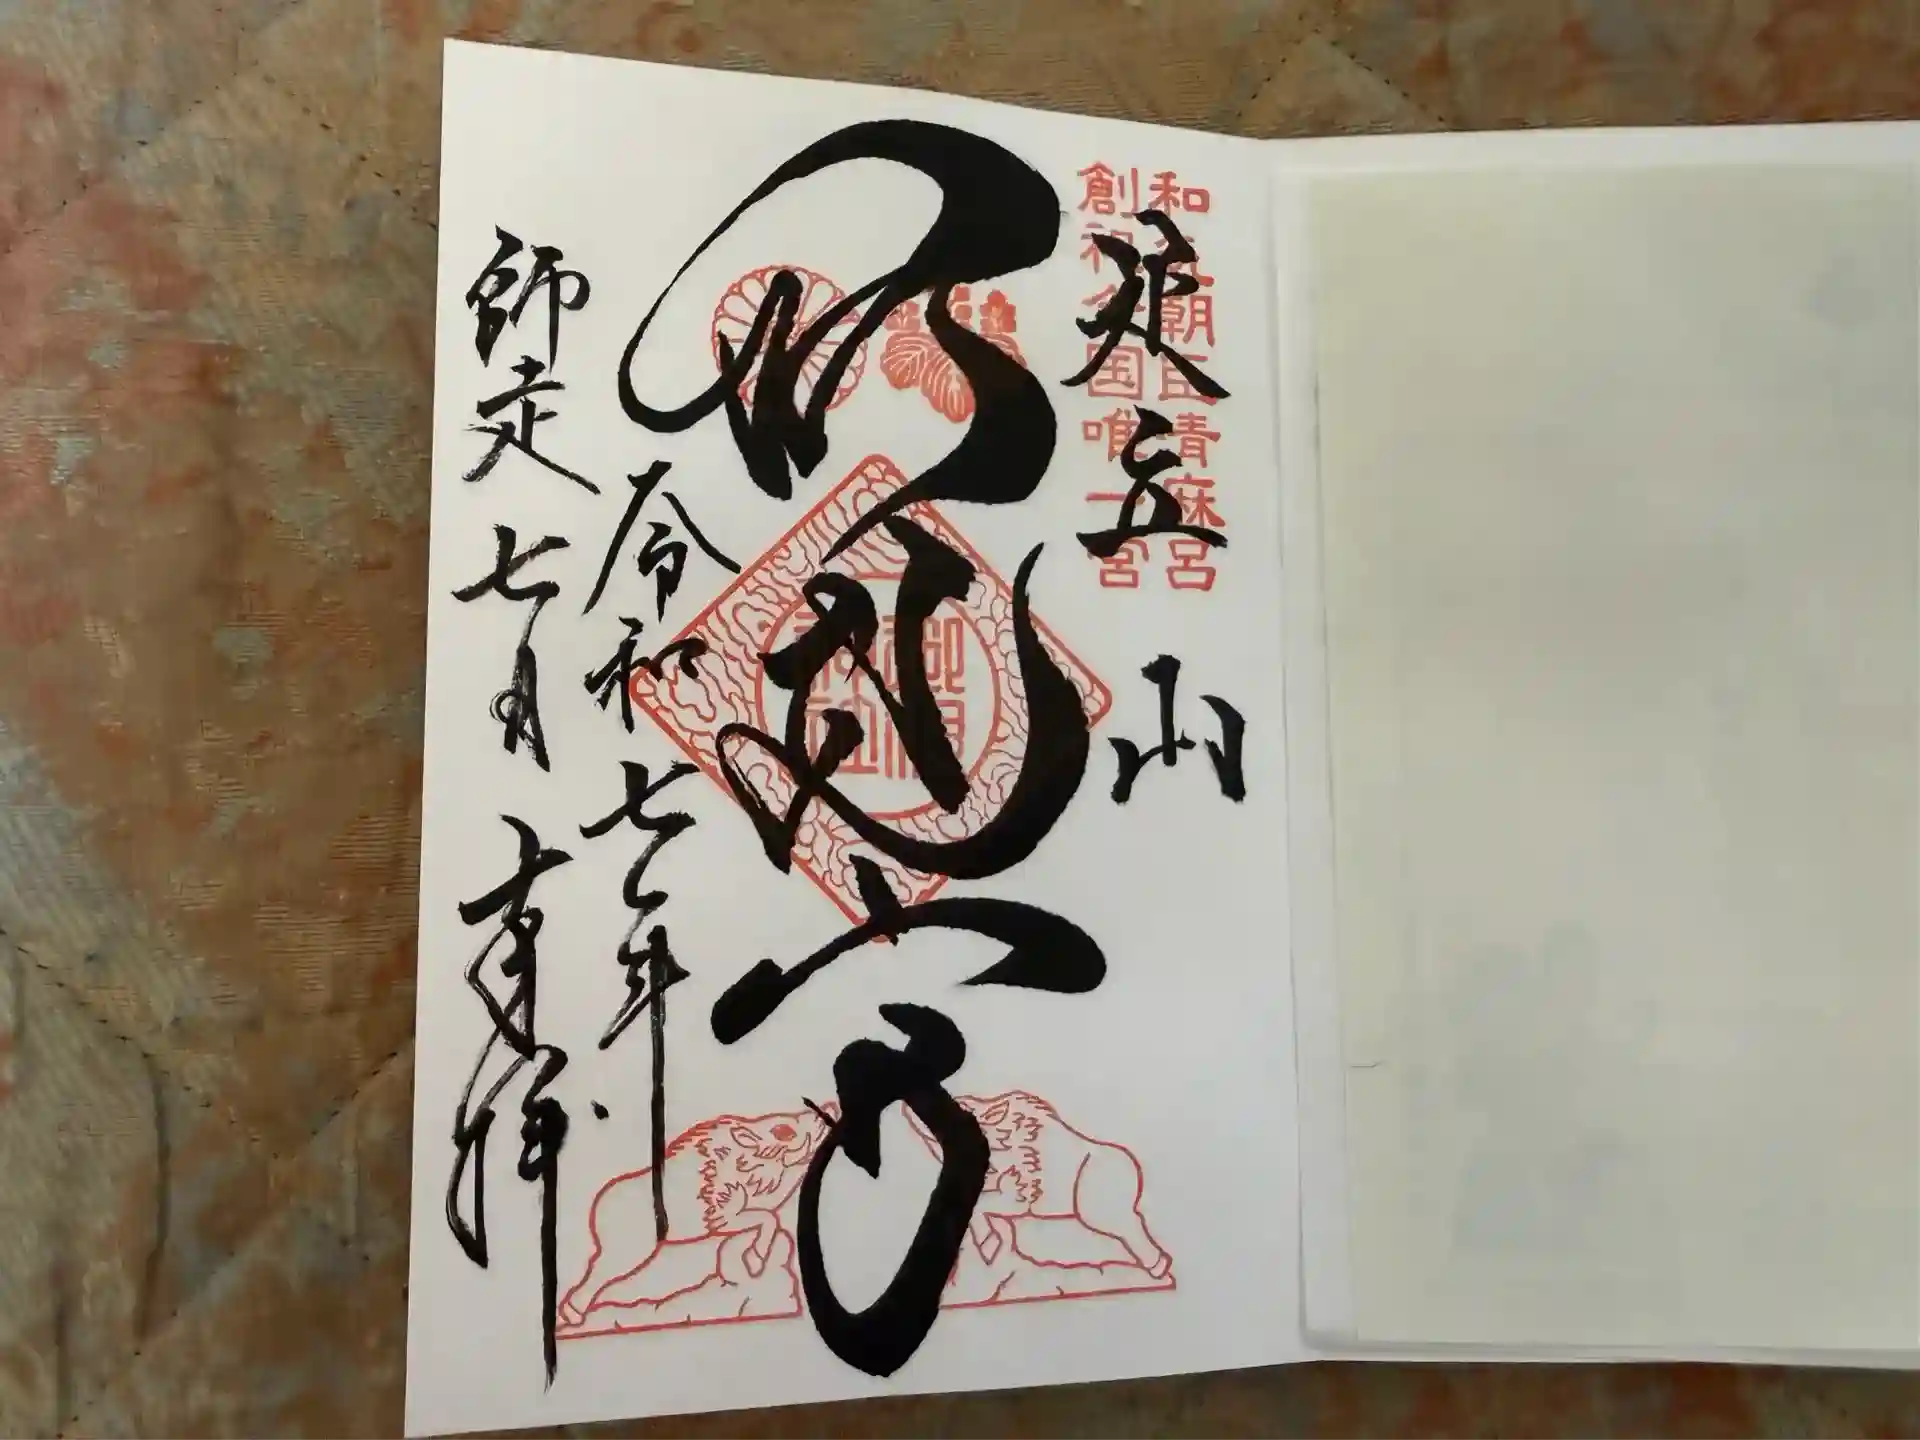 足立山
和気朝臣清麻呂
創祀全国唯一宮
妙見宮
御祖
神社
令和七年
師走七日 奉拝